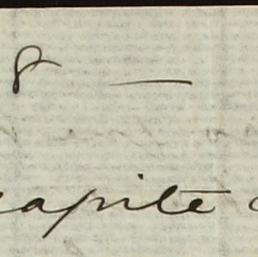 8 —
capite